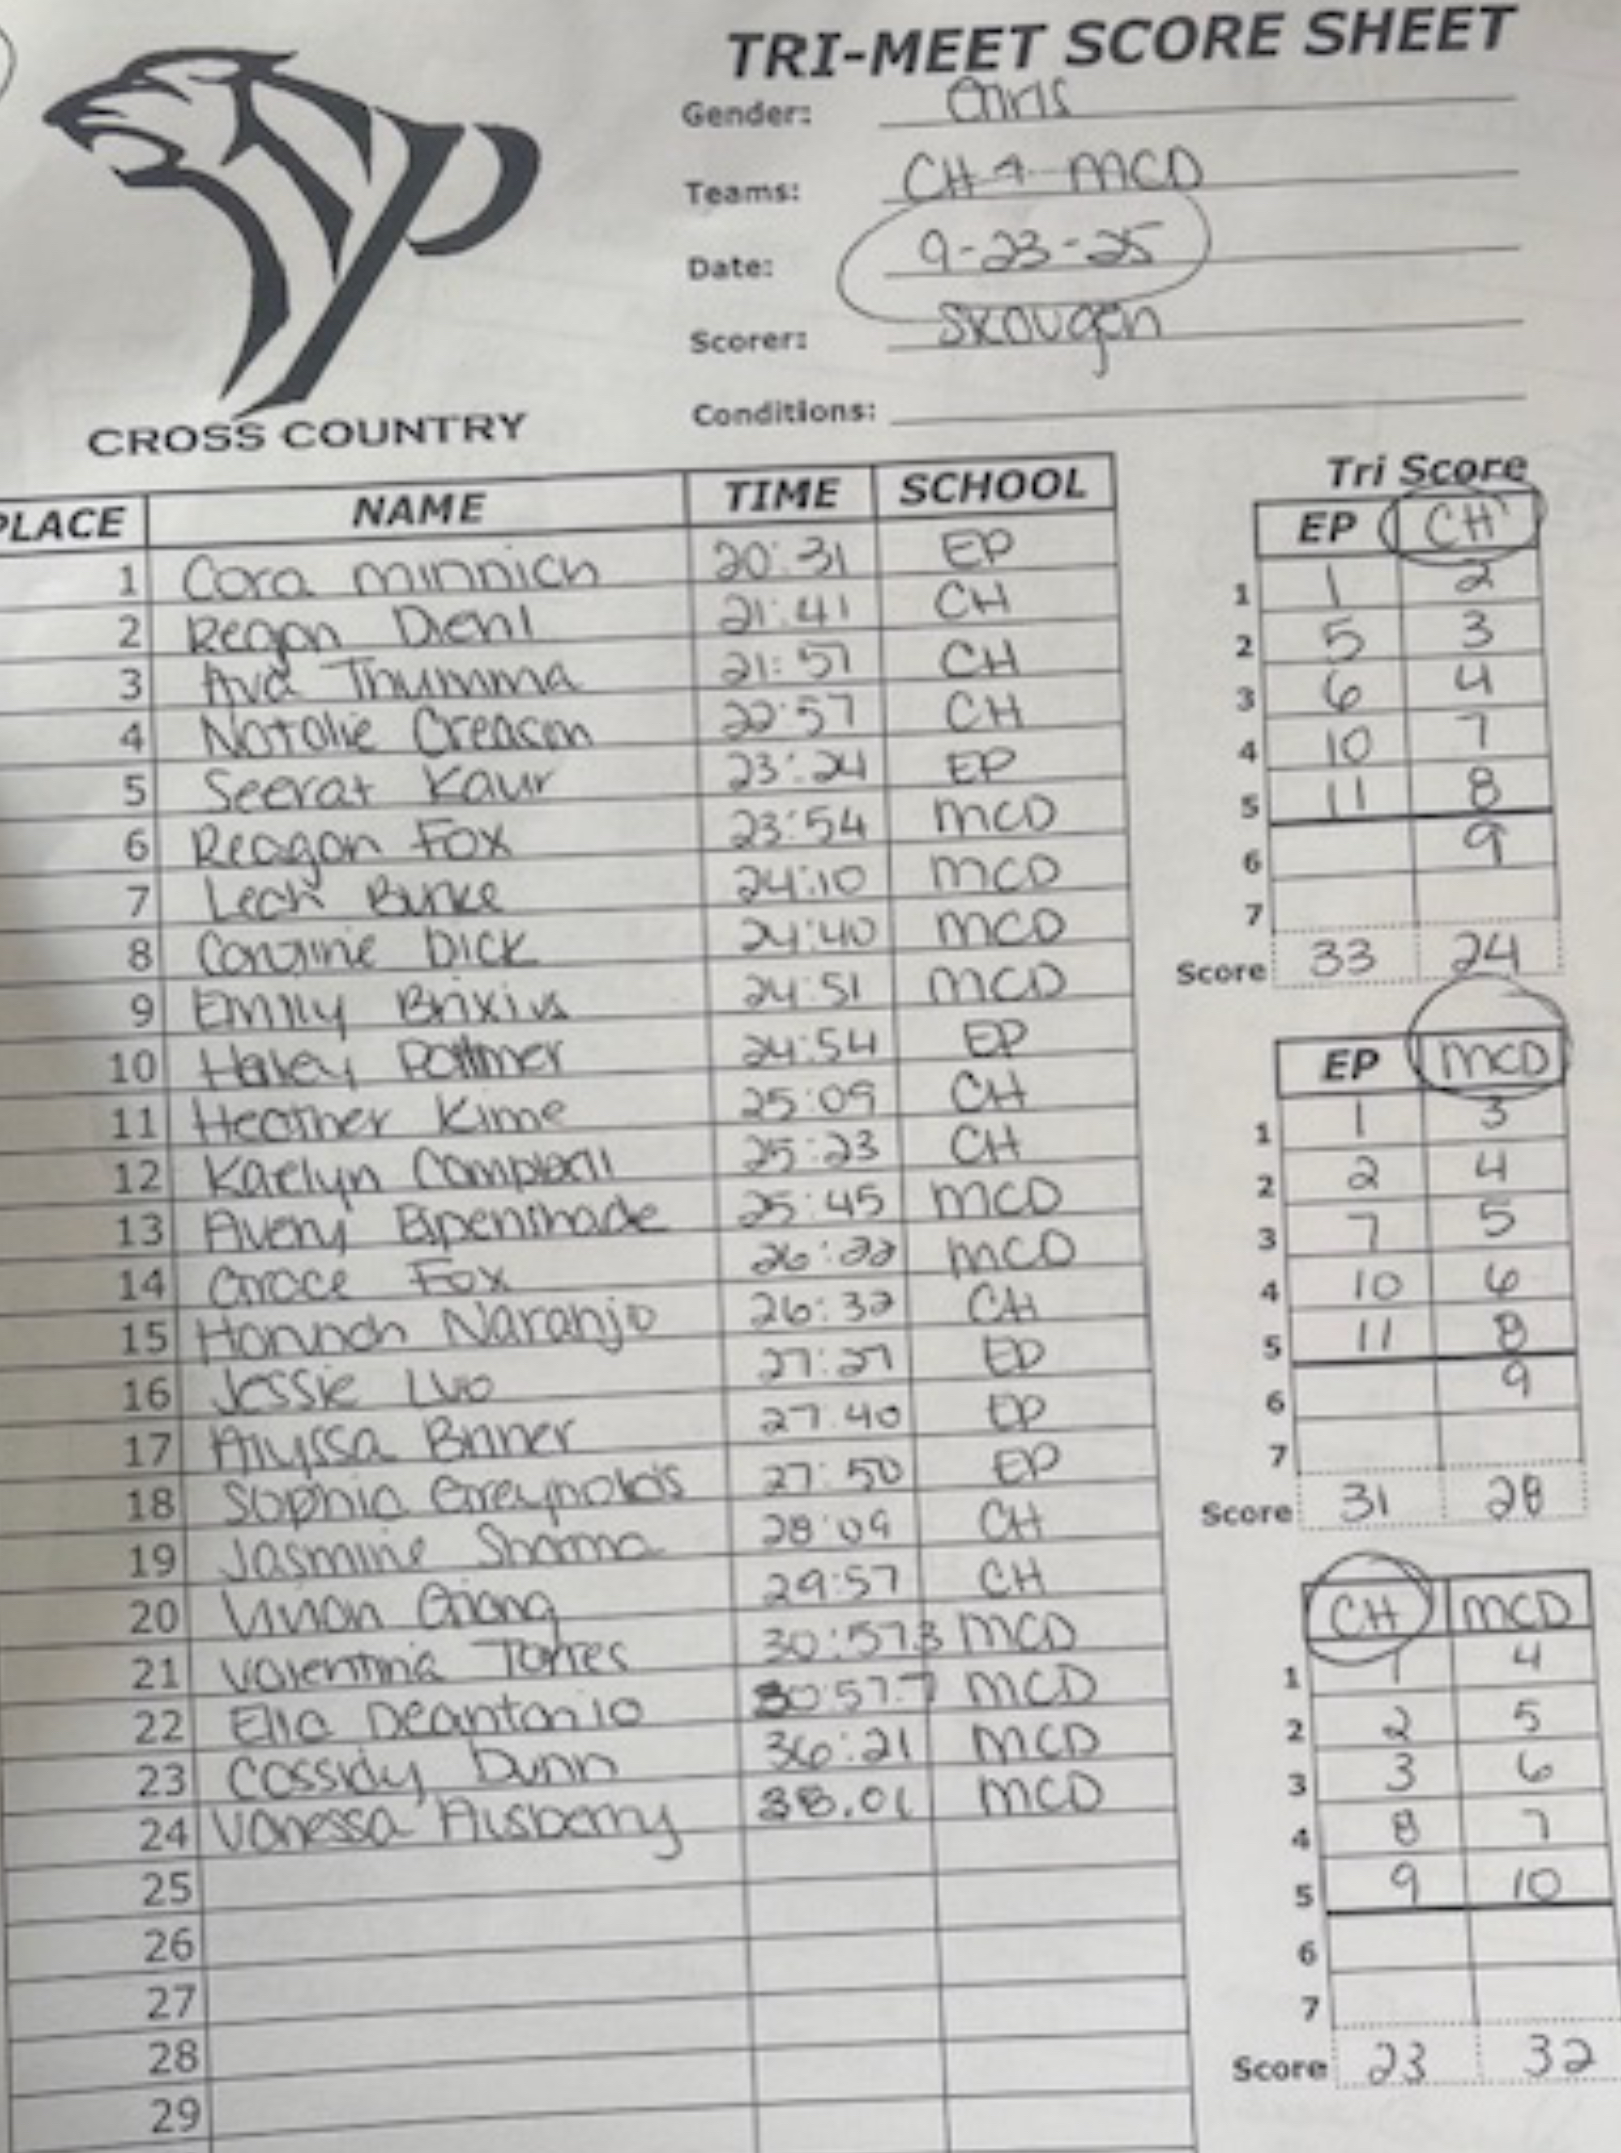 TRI-MEET SCORE SHEET
Gender: Girls
Teams: CH + MCD
Date: 9-23-25
Scorer: Skougen
Conditions:
CROSS COUNTRY
PLACE NAME TIME SCHOOL
1 Cora Minnich 20:31 EP
2 Regan Diehl 21:41 CH
3 Ava Thumma 21:57 CH
4 Natalie Creason 22:57 CH
5 Seerat Kaur 23:24 EP
6 Reagan Fox 23:54 MCD
7 Leah Burke 24:10 MCD
8 Caroline Dick 24:40 MCD
9 Emily Brixius 24:51 MCD
10 Hailey 24:54 EP
11 Heather Kime 25:09 CH
12 Kaelyn Campbell 25:23 CH
13 Avery Espenshade 25:45 MCD
14 Grace Fox 26:22 MCD
15 Hannah Naranjo 26:32 CH
16 Jessie Luo 27:27 EP
17 Alyssa Binner 27:40 EP
18 Sophia Greynolds 27:50 EP
19 Jasmine Sharma 28:09 CH
20 Vivian Giang 29:57 CH
21 Valentina Torres 30:57.3 MCD
22 Ella Deantonio 30:57.7 MCD
23 Cassidy Dunn 36:21 MCD
24 Vanessa Ausberry 38.01 MCD
25
26
27
28
29
Tri Score
EP CH
1 1 2
2 5 3
3 6 4
4 10 7
5 11 8
6 9
7
Score 33 24
EP MCD
1 1 3
2 2 4
3 7 5
4 10 6
5 11 8
6 9
7
Score 31 28
CH MCD
1 1 4
2 2 5
3 3 6
4 8 7
5 9 10
6
7
Score 23 32